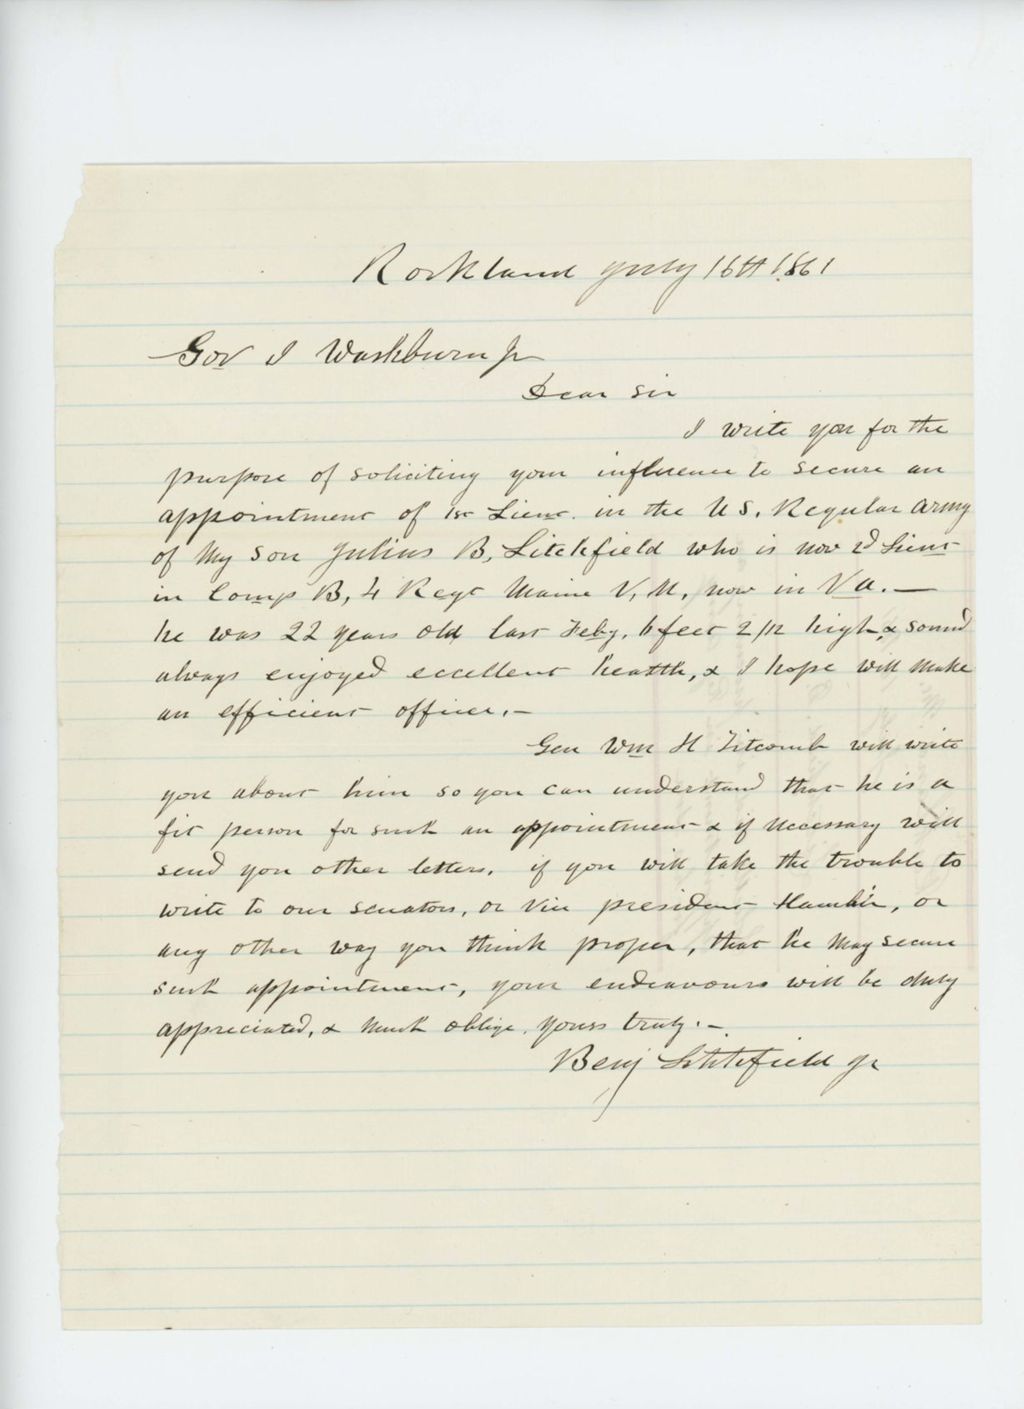 Rockland July 16th 1861
Gov I Washburn Jr
Dear Sir
I write you for the
purpose of soliciting your influence to secure an
appointment of 1st Lieut. in the U S. Regular Army
of My Son Julius B, Litchfield who is now 2d Lieut
in Comp B, 4 Regt Maine V, M, now in Va. —
he was 22 years old last Feby, 6 feet 2/12 high, & sound
always enjoyed excellent health, & I hope will make
an efficient officer. —
Gen Wm H Titcomb will write
you about him so you can understand that he is a
fit person for such an appointment & if Necessary will
send you other letters. if you will take the trouble to
write to our senators, or Vice president Hamlin, or
any other way you think proper, that he May secure
such appointment, your endeavours will be duly
appreciated, & Much oblige, Yours truly. —
Benj Litchfield Jr